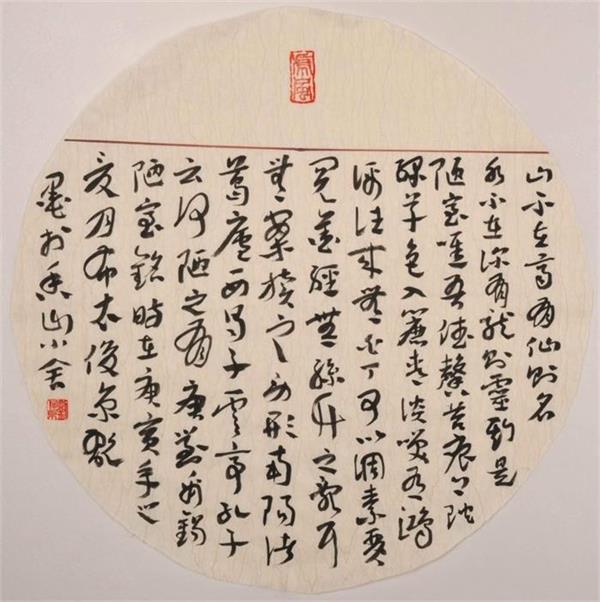 山不在高有仙则名
水不在深有龍则靈斯是
陋室唯吾德馨苔痕上階
綠草色入簾青淡笑有鴻
儒往来無白丁可以調素琴
閱金經無絲竹之亂耳
無案牘之勞形南陽諸
葛廬西蜀子雲亭孔子
云何陋之有唐劉禹錫
陋室銘時在庚寅年之
夏月布衣俊
墨於香山小舍